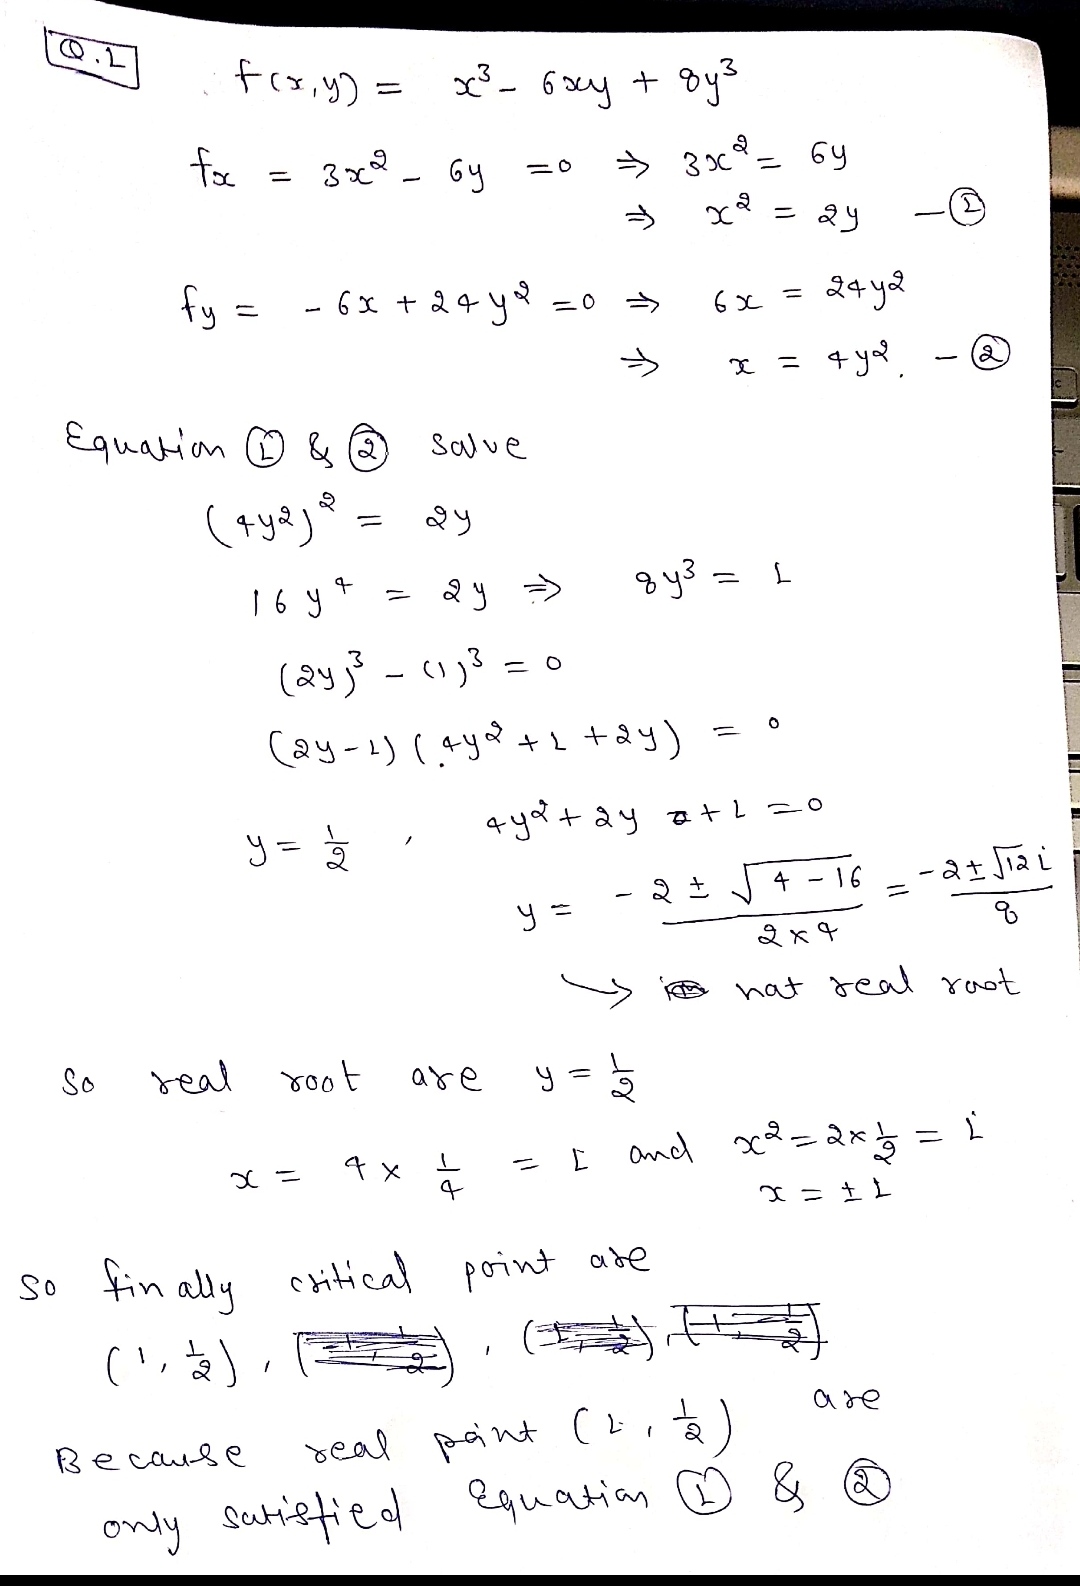 Q.1
f(x,y) = x³ - 6xy + 8y³
fx = 3x² - 6y = 0 ⇒ 3x² = 6y
⇒ x² = 2y - ①
fy = - 6x + 24y² = 0 ⇒ 6x = 24y²
⇒ x = 4y². - ②
Equation ① & ② solve
(4y2)² = 2y
16y⁴ = 2y ⇒ 8y³ = 1
(2y)³ - (1)³ = 0
(2y-1) (4y² + 1 + 2y) = 0
y = 1/2 , 4y² + 2y + 1 = 0
y = (- 2 ± √(4 - 16))/(2×4) = (-2 ± √12 i)/8
↳ not real root
So real root are y = 1/2
x = 4 × 1/4 = 1 and x² = 2×1/2 = 1
x = ± 1
So finally critical point are
(1, 1/2),
Because real point (1, 1/2) are
only satisfied Equation ① & ②